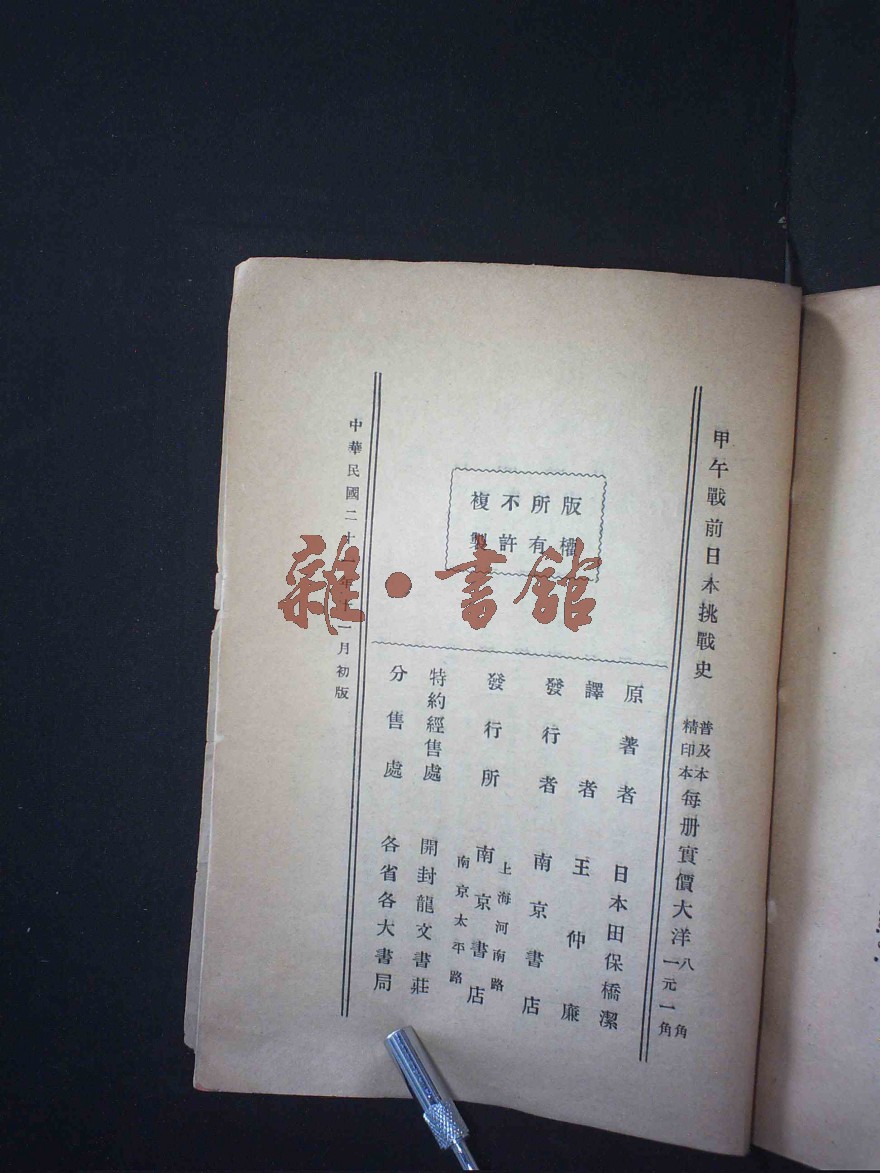 甲午戰前日本挑戰史
普及本
精印本
每册實價大洋
八角
一元一角
版權
所有
不許
複製
原著者 日本田保橋潔
譯者 王仲廉
發行者 南京書店
發行所 南京書店
上海河南路
南京太平路
特約經售處 開封龍文書莊
分售處 各省各大書局
中華民國二十一年十一月初版
雜·書館